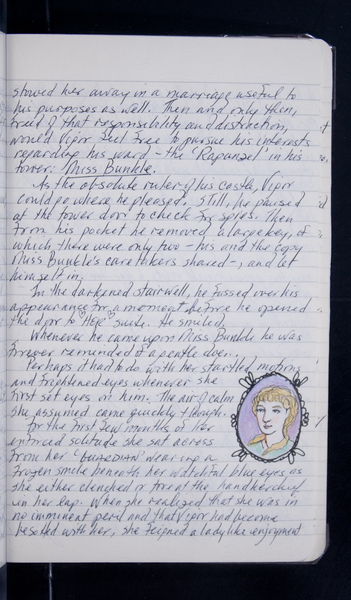 stowed her away in a marriage useful to
his purposes as well. Then and only then,
freed of that responsibility and distraction,
would Vipor feel free to pursue his interests
regarding his ward - the 'Rapunzel' in his
tower: Miss Bunkle.
As the absolute ruler of his castle, Vipor
could go where he pleased. Still, he paused
at the tower door to check for spies. Then
from his pocket he removed a large key, of
which there were only two - his and the copy
Miss Bunkle's caretakers shared -, and let
himself in.
In the darkened stairwell, he fussed over his
appearance for a moment before he opened
the door to 'Her' suite. He smiled.
Whenever he came upon Miss Bunkle he was
forever reminded of a gentle doe.
Perhaps it had to do with her startled motion
and frightened eyes whenever she
first set eyes on him. The air of calm
she assumed came quickly though.
For the first few months of her
enforced solitude she sat across
from her 'guardian' wearing a
frozen smile beneath her watchful blue eyes as
she either clenched or tore at the handkerchief
in her lap. When she realized that she was in
no imminent peril and that Vipor had become
besotted with her, she feigned a ladylike enjoyment